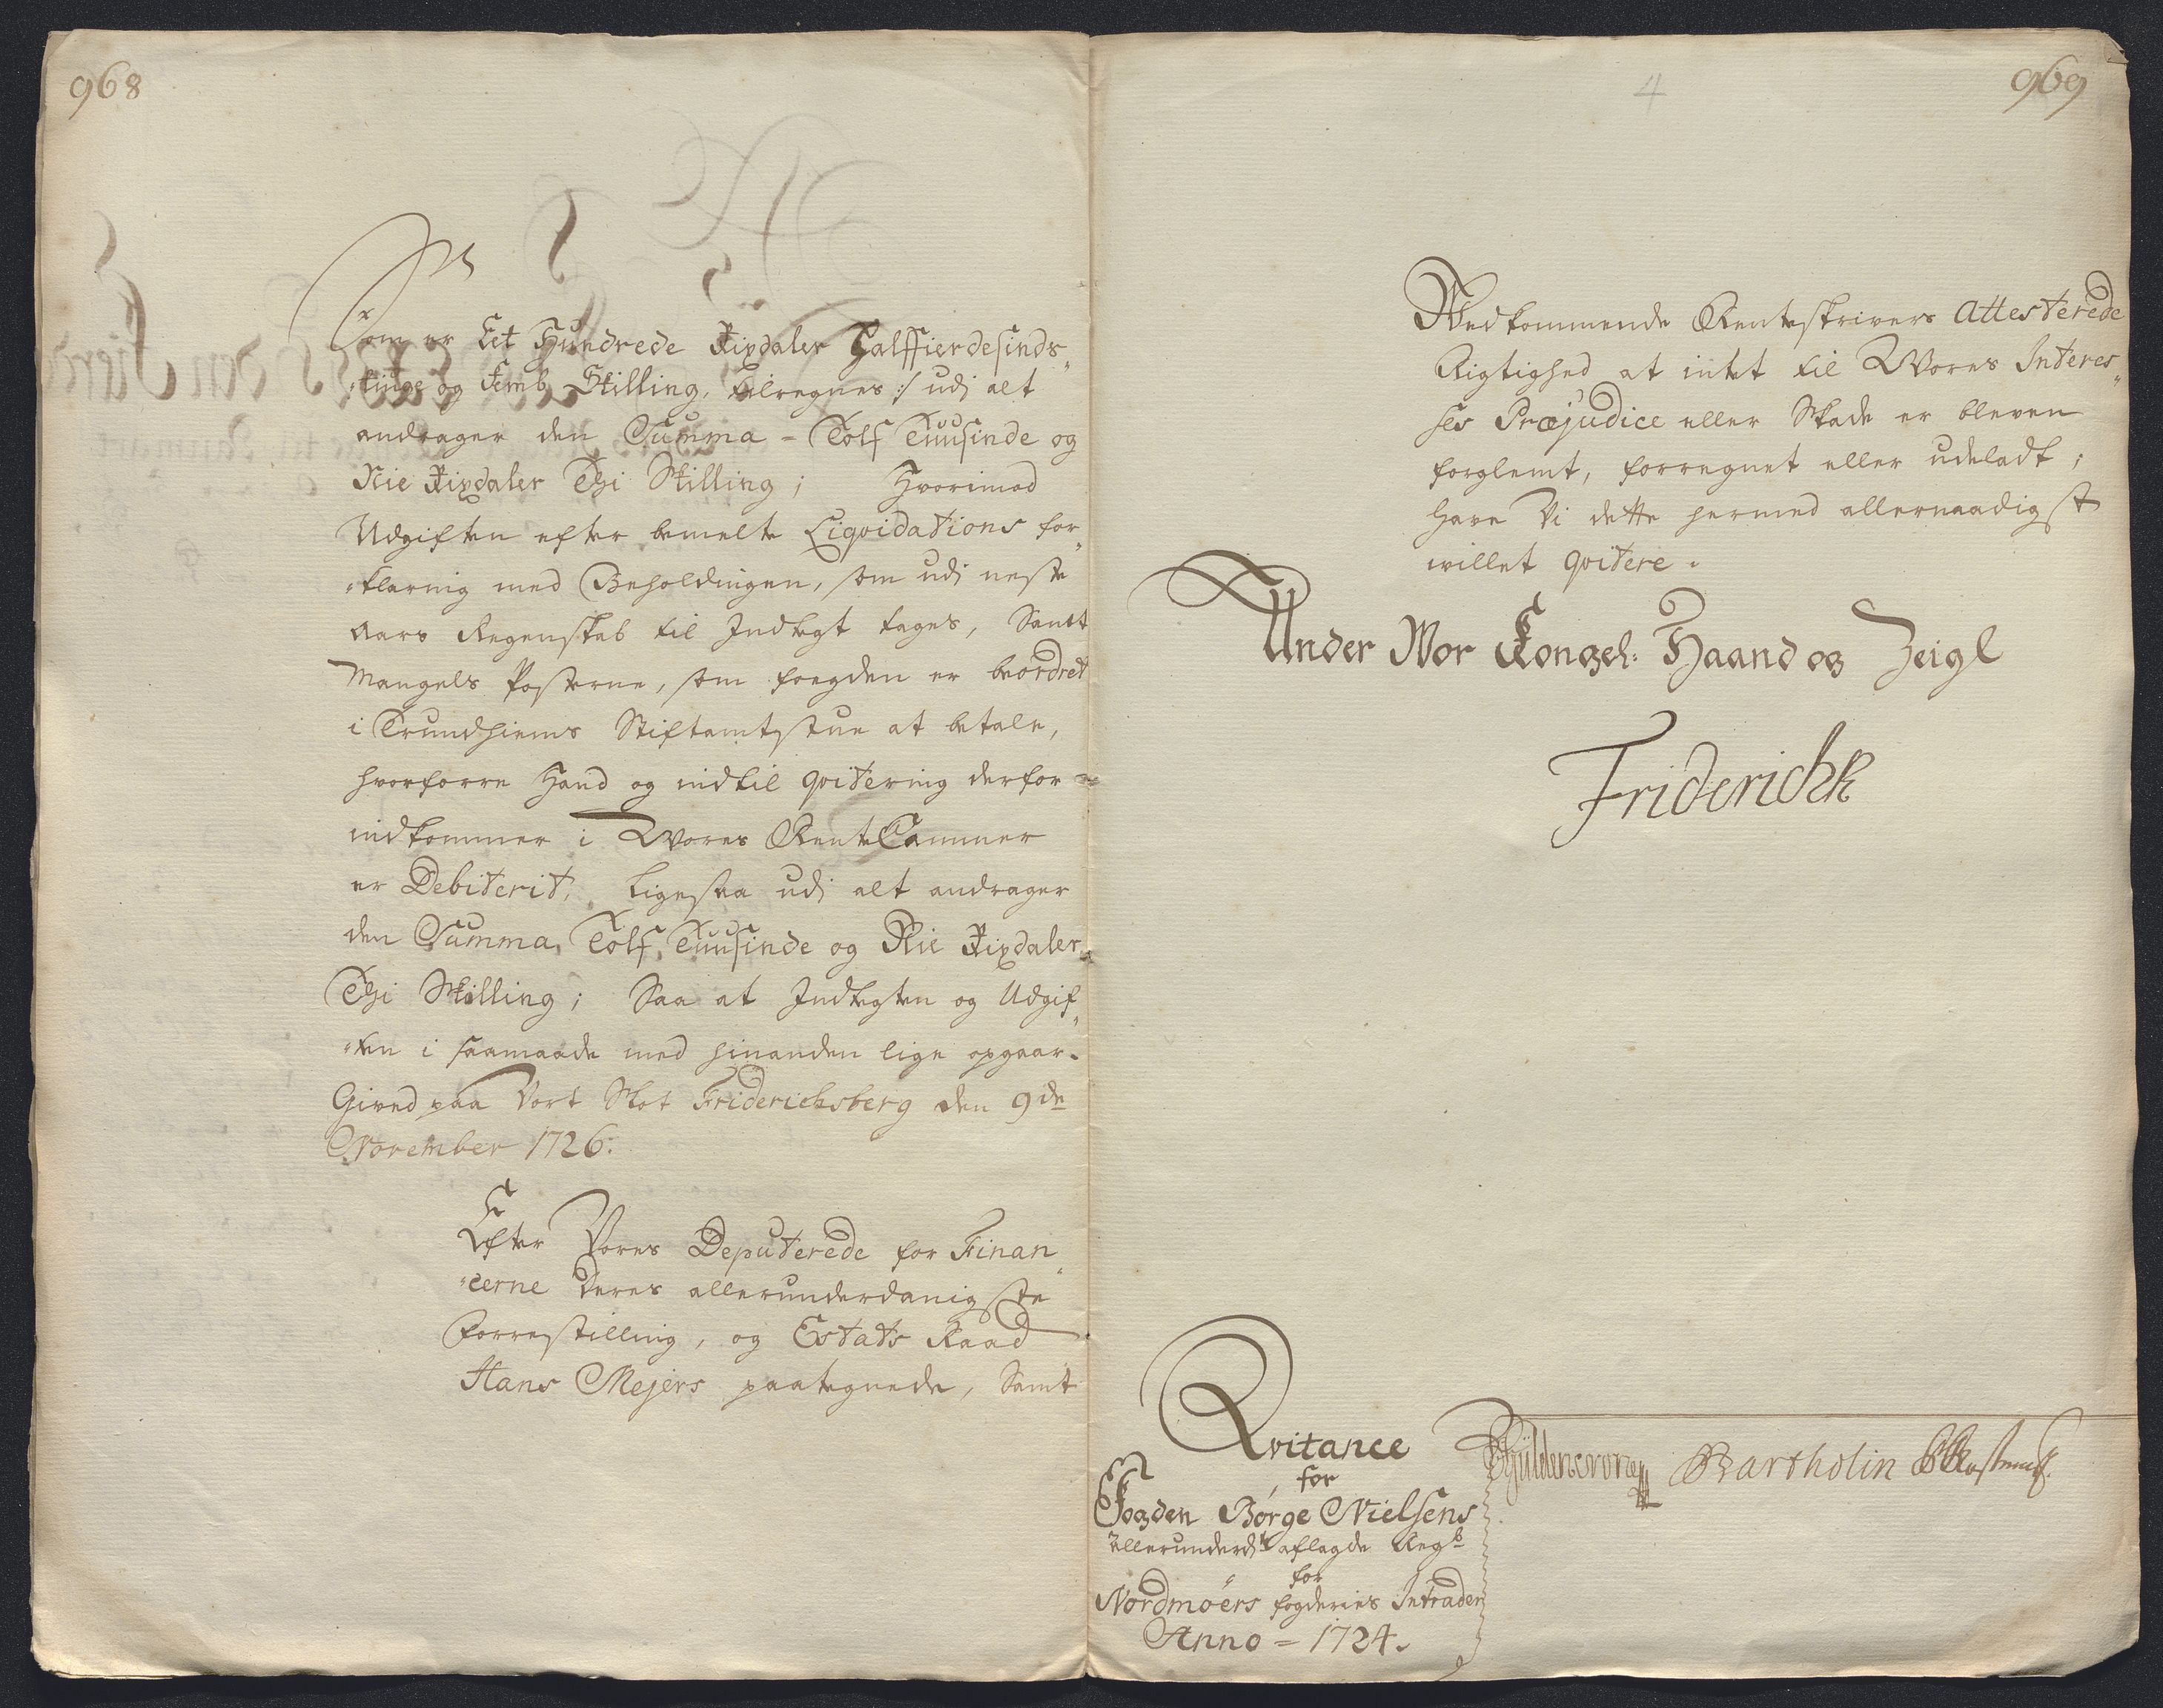 968
Som er Eet Hundrede Rixdaler Halffierdesinds„
„tiuge og Femb Skilling, tilregnes :/ udj alt
andrager den Summa = Tolf Tuusinde og
Nie Rixdaler Thi Skilling; Hvorimod
Udgiften efter bemelte Liqvidations for„
„klaring med Beholdingen, som udj neste
Aars Regenskab til Indtegt tages, Samt
Mangels Posterne, som fogden er beordret
i Trundhiems Stiftamtstue at betale,
hvorforre Hand og indtil qvitering derfor
indkommer i Wores RenteCammer
er Debiterit, Ligesaa udj alt andrager
den Summa, Tolf Tuusinde og Nie Rixdaler
Thi Skilling; Saa at Indtegten og Udgif„
„ten i saamaade med hinanden lige opgaar.
Gived paa Vort Slot Friderichsberg den 9de
November 1726.
Efter Vores Deputerede for Finan„
„cerne Deres allerunderdanigste
Forrestilling, og Estats Raad
Hans Mejers paategnede, Samt
4
969
Wedkommende Renteskrivers Attesterede
Rigtighed at intet til Wores Interes„
ses Præjudice eller Skade er bleven
forglemt, forregnet eller udeladt;
Have Vi dette hermed allernaadigst
willet qvitere.
Under Wor Kongel: Haand og Zeigl
FriderichR
Qvitance
for
Fogden Børge Nielsens
allerunderdst aflagde Regsb
for
Nordmøers fogderies Intrader
Anno = 1724.
Güldencrone Bartholin